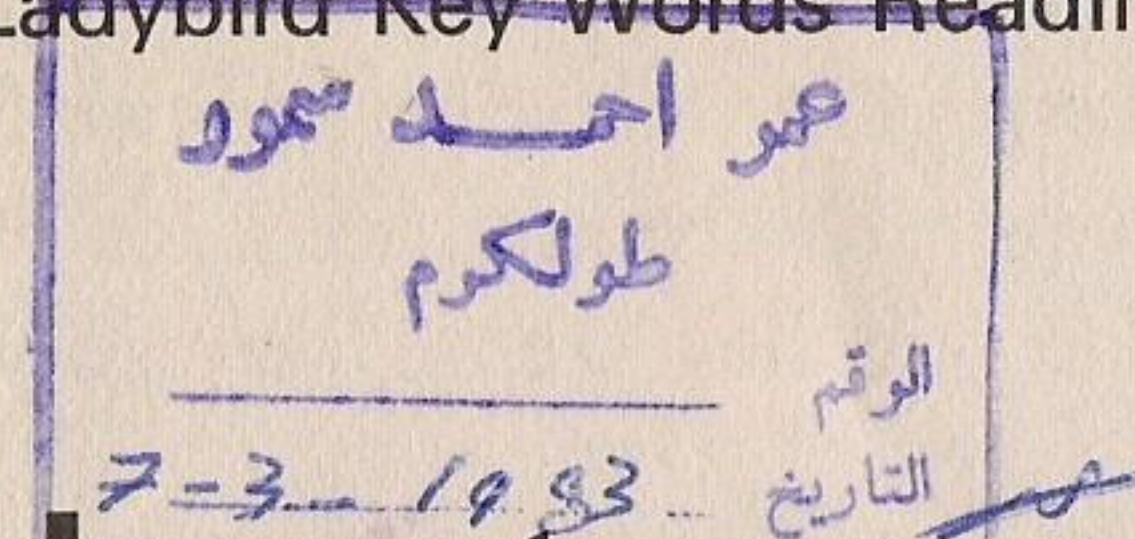 Ladybird Key Words Readin
عمر احمد سمور
طولكرم
الرقم
التاريخ 7-3-1993